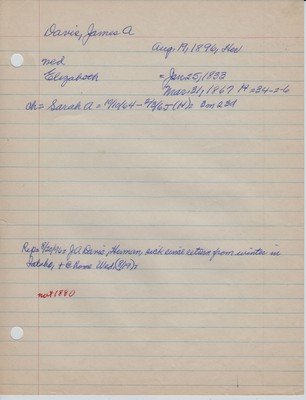 Davis, James A
Aug. 19, 1896, Her
med
Elizabeth = Jan 25, 1833
Mar 21, 1867 M = 34-1-6
ch = Sarah A = 12/10/64 - 2/12/65 (M): 2m 22d
Rep: J A Davis, Herman, sick since return from winter in
Idaho, + @ home Wed (8/19):
not 1880